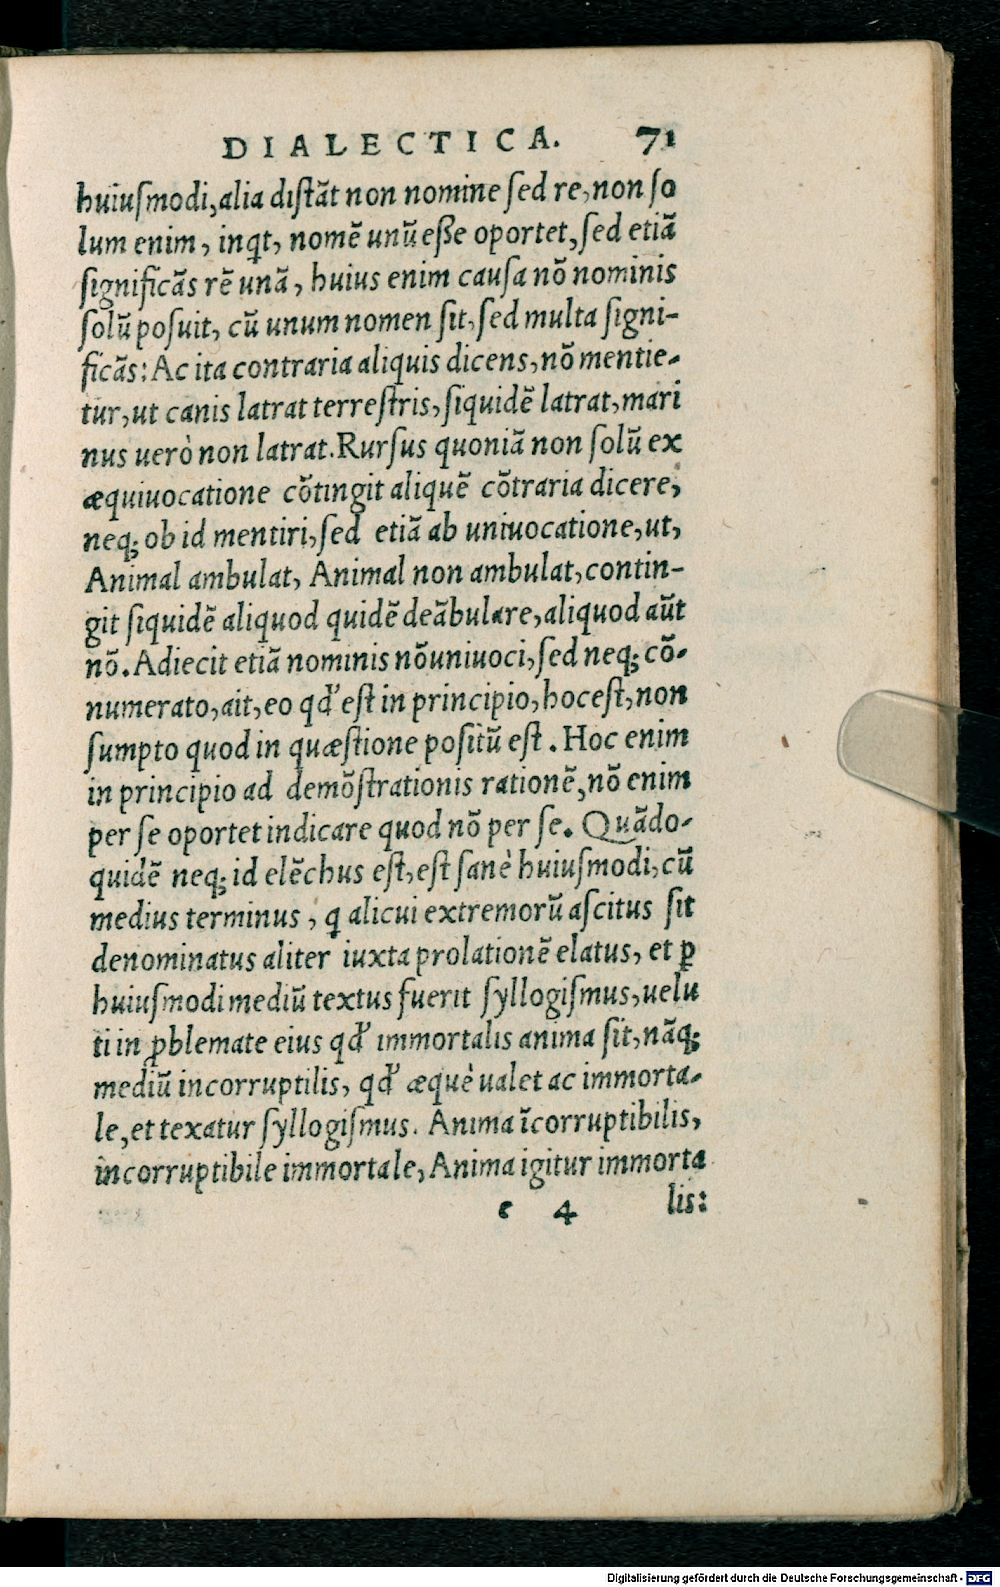 DIALECTICA. 71
huiuſmodi, alia diſtãt non nomine ſed re, non ſo
lum enim, inq̃t, nomẽ unũ eſſe oportet, ſed etiã
ſignificãs rẽ unã, huius enim cauſa nõ nominis
ſolũ poſuit, cũ unum nomen ſit, ſed multa ſigni-
ficãs: Ac ita contraria aliquis dicens, nõ mentie-
tur, ut canis latrat terreſtris, ſiquidẽ latrat, mari
nus uerò non latrat. Rurſus quoniã non ſolũ ex
æquiuocatione cõtingit aliquẽ cõtraria dicere,
neq; ob id mentiri, ſed etiã ab uniuocatione, ut,
Animal ambulat, Animal non ambulat, contin-
git ſiquidẽ aliquod quidẽ deãbulare, aliquod aũt
nõ. Adiecit etiã nominis nõuniuoci, ſed neq; cõ-
numerato, ait, eo qd' eſt in principio, hoceſt, non
ſumpto quod in quæſtione poſitũ eſt. Hoc enim
in principio ad demõſtrationis rationẽ, nõ enim
per ſe oportet indicare quod nõ per ſe. Quãdo-
quidẽ neq; id elẽchus eſt, eſt ſanè huiuſmodi, cũ
medius terminus, q alicui extremorũ aſcitus ſit
denominatus aliter iuxta prolationẽ elatus, et ꝑ
huiuſmodi mediũ textus fuerit ſyllogiſmus, uelu
ti in ꝓblemate eius qd' immortalis anima ſit, nãq;
mediũ incorruptilis, qd' æquè ualet ac immorta-
le, et texatur ſyllogiſmus. Anima ĩcorruptibilis,
incorruptibile immortale, Anima igitur immorta
e 4 lis:
Digitalisierung gefördert durch die Deutsche Forschungsgemeinschaft - DFG